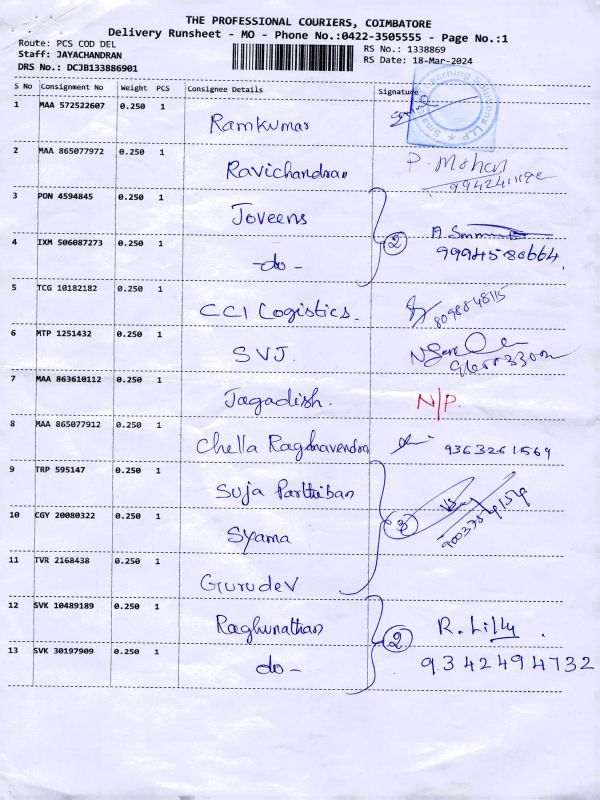 THE PROFESSIONAL COURIERS, COIMBATORE
Delivery Runsheet - MO - Phone No.:0422-3505555 - Page No.:1
Route: PCS COD DEL
RS No.: 1338869
Staff: JAYACHANDRAN
RS Date: 18-Mar-2024
DRS No.: DCJB133886901
S No Consignment No Weight PCS Consignee Details Signature
Smart Learning Solutions LLP
1 MAA 572522607 0.250 1 Ramkumar
2 MAA 865077972 0.250 1 Ravichandran P. Mohan
3 PON 4594845 0.250 1 Joveens
4 IXM 506087273 0.250 1 -do- 2 9994580664
5 TCG 10182182 0.250 1 CCI Logistics. 8098848115
6 MTP 1251432 0.250 1 SVJ.
7 MAA 863610112 0.250 1 Jagadish. N/P.
8 MAA 865077912 0.250 1 Chella Raghavendra 9363261569
9 TRP 595147 0.250 1 Suja Parthiban
10 CGY 20080322 0.250 1 Syama 3
11 TVR 2168438 0.250 1 Gurudev
12 SVK 10489189 0.250 1 Raghunathan 2 R. Lilly.
13 SVK 30197909 0.250 1 do- 9342494732